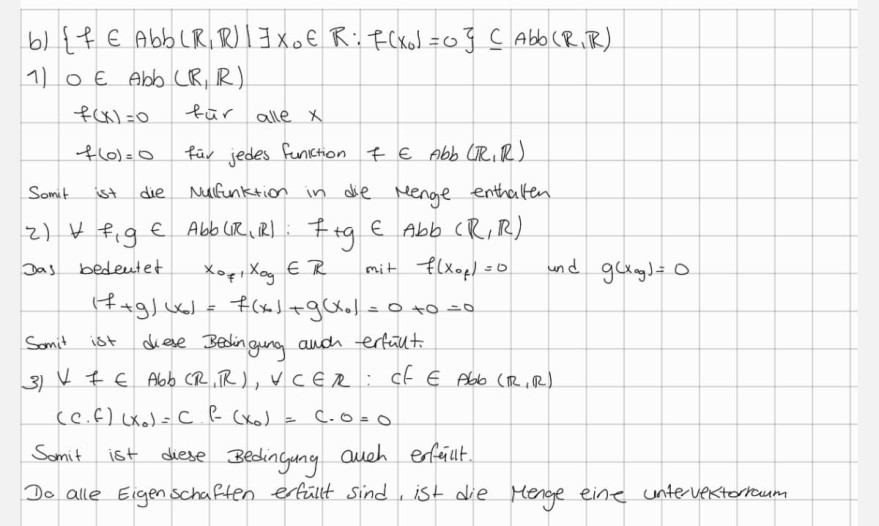 b) {f ∈ Abb(ℝ,ℝ) | ∃ x₀ ∈ ℝ : f(x₀) = 0} ⊆ Abb(ℝ,ℝ)
1) 0 ∈ Abb(ℝ,ℝ)
f(x)=0 für alle x
f(0)=0 für jedes funktion f ∈ Abb(ℝ,ℝ)
Somit ist die Nulfunktion in die Menge enthalten
2) ∀ f,g ∈ Abb(ℝ,ℝ) : f+g ∈ Abb(ℝ,ℝ)
Das bedeutet x₀f, x₀g ∈ ℝ mit f(x₀f) = 0 und g(x₀g) = 0
(f+g)(x₀) = f(x₀) + g(x₀) = 0 + 0 = 0
Somit ist diese Bedingung auch erfüllt.
3) ∀ f ∈ Abb(ℝ,ℝ), ∀ c ∈ ℝ : cf ∈ Abb(ℝ,ℝ)
(c.f)(x₀) = c f(x₀) = c.0 = 0
Somit ist diese Bedingung auch erfüllt.
Da alle Eigenschaften erfüllt sind, ist die Menge eine untervektorraum